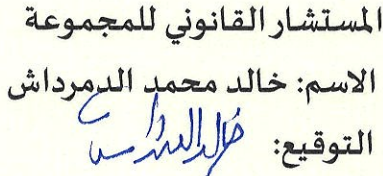 المستشار القانوني للمجموعة
الاسم: خالد محمد الدمرداش
التوقيع: